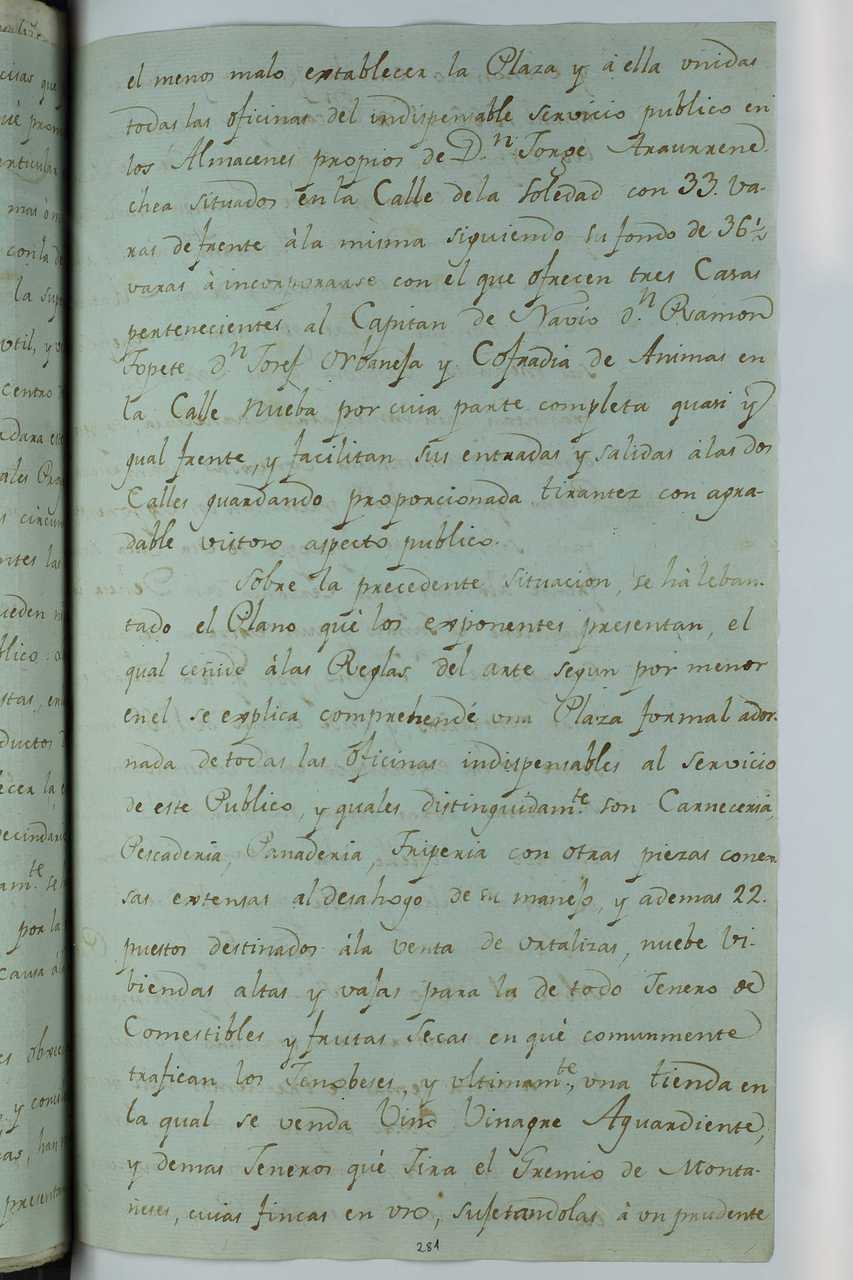 el menos malo, establecer la Plaza y á ella vnidas
todas las oficinas del indispensable servicio publico en
los Almacenes propios de D.n Jorge Araurrene
chea situados en la Calle de la Soledad con 33. va-
ras de frente á la misma siguiendo su fondo de 36½
varas á incorporarse con el que ofrecen tres Casas
pertenecientes al Capitan de Navio d.n Ramon
Topete d.n Josef Orbaneja y Cofradia de Animas en
la Calle Nueba por cuia parte completa quasi y
gual frente, y facilitan sus entradas y salidas á las dos
Calles guardando proporcionada tirantez con agra-
dable vistoso aspecto publico.
Sobre la precedente situacion, se há leban-
tado el Plano qué los exponentes presentan, el
qual ceñido á las Reglas del arte segun por menor
en el se explica comprehendé vna Plaza formal ador-
nada de todas las oficinas indispensables al servicio
de este Publico, y quales distinguidam.te son Carneceria,
Pescaderia, Panaderia, Friperia con otras piezas conex
sas extensas al desahogo de su manejo, y ademas 22.
puestos destinados á la venta de ortalizas, nuebe vi-
biendas altas y vajas para la de todo Jenero de
Comestibles y frutas secas en qué comunmente
trafican los Jenobeses, y vltimam.te, vna tienda en
la qual se venda Vino Vinagre Aguardiente,
y demas Jeneros qué Jira el Gremio de Monta-
ñeses, cuias fincas en vso, sujetandolas á vn prudente
281